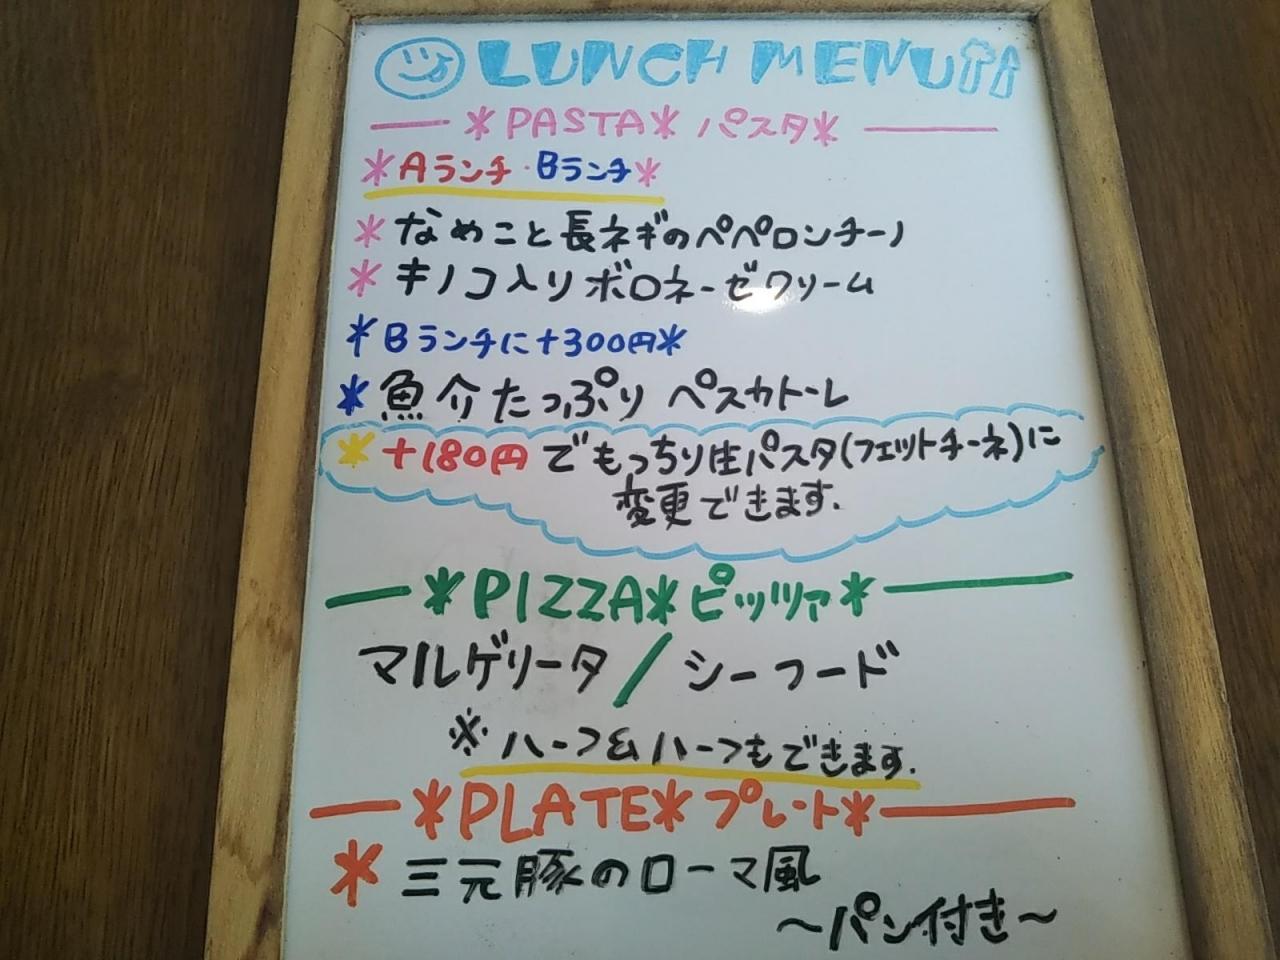 LUNCH MENU
*PASTA* パスタ*
*Aランチ・Bランチ*
*なめこと長ネギのペペロンチーノ
*キノコ入りボロネーゼクリーム
*Bランチに+300円*
*魚介たっぷり ペスカトーレ
*+180円でもっちり生パスタ(フェットチーネ)に
変更できます.
*PIZZA*ピッツァ*
マルゲリータ/シーフード
※ハーフ&ハーフもできます.
*PLATE*プレート*
*三元豚のローマ風
~パン付き~